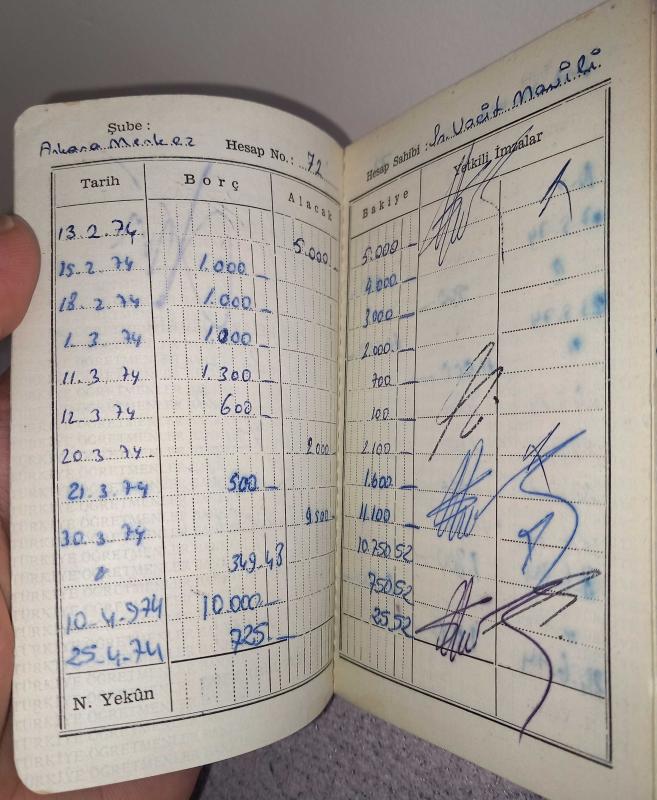 Şube :
Ankara Merkez
Hesap No.: 72
Hesap Sahibi :
Tarih Borç Alacak Bakiye Yetkili İmzalar
13.2.74 5.000 5.000
15.2.74 1.000 4.000
18.2.74 1.000 3.000
1.3.74 1.000 2.000
11.3.74 1.300 700
12.3.74 600 100
20.3.74 2000 2.100
21.3.74 500 1.600
30.3.74 9500 11.100
" 349.48 10.750 52
10.4.974 10.000 750 52
25.4.74 725 25,52
N. Yekûn
TÜRKİYE ÖĞRETMENLER BANKASI